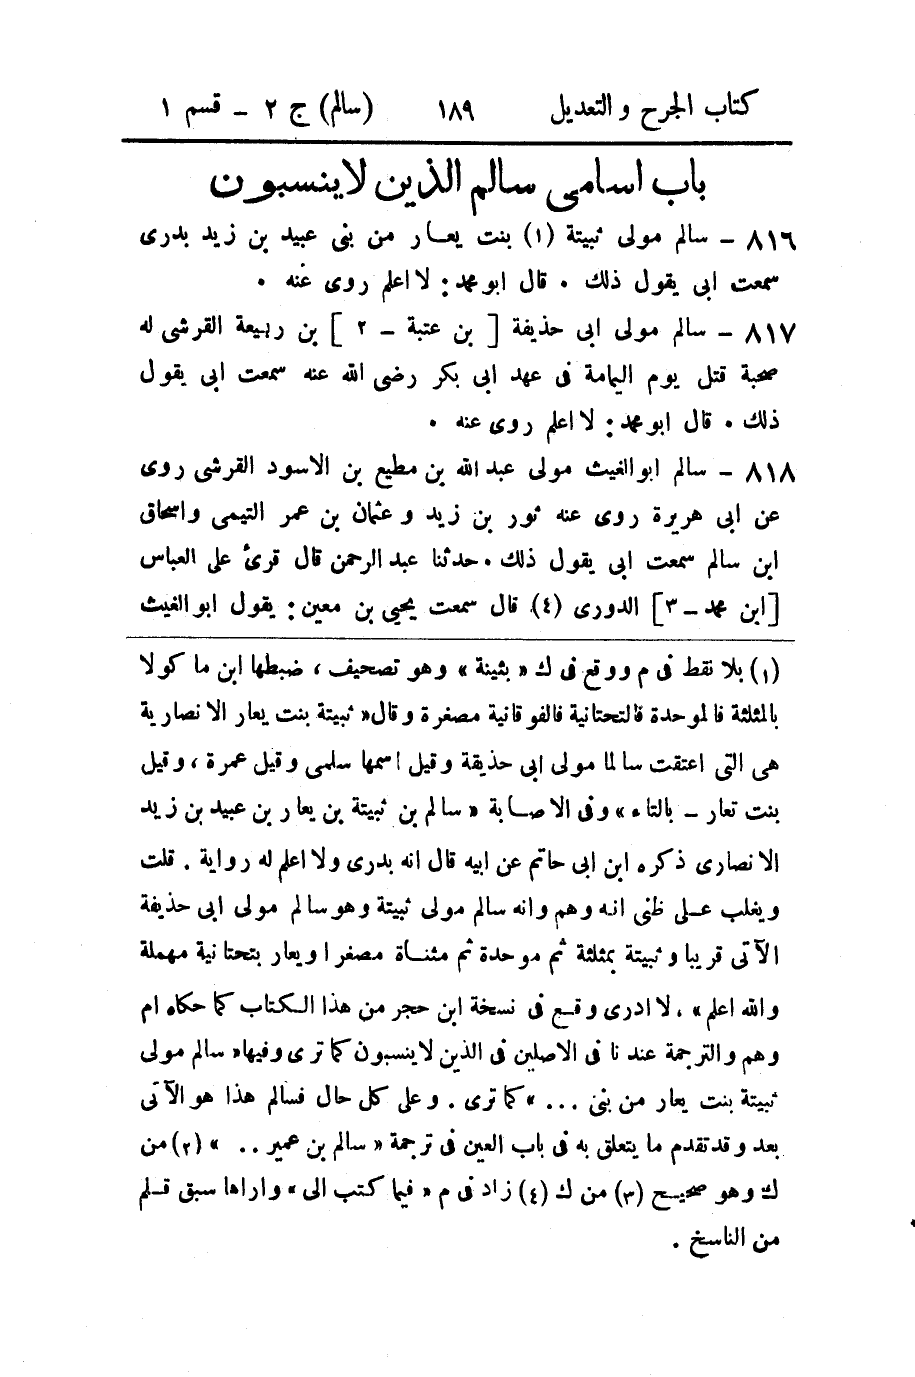 كتاب الجرح و التعديل ١٨٩ (سالم) ج ٢ - قسم ١
باب اسامى سالم الذين لاينسبون
٨١٦ - سالم مولى ثبيتة (١) بنت يعـار من بنى عبيد بن زيد بدرى
سمعت ابى يقول ذلك . قال ابو محمد : لا اعلم روى عنه .
٨١٧ - سالم مولى ابى حذيفة [ بن عتبة - ٢ ] بن ربيعة القرشى له
صحبة قتل يوم اليمامة فى عهد ابى بكر رضى الله عنه سمعت ابى يقول
ذلك . قال ابو محمد : لا اعلم روى عنه .
٨١٨ - سالم ابو الغيث مولى عبد الله بن مطيع بن الاسود القرشى روى
عن ابى هريرة روى عنه ثور بن زيد و عثمان بن عمر التيمى واسحاق
ابن سالم سمعت ابى يقول ذلك . حدثنا عبد الرحمن قال قرئ على العباس
[ابن محمد - ٣] الدورى (٤) قال سمعت يحيى بن معين : يقول ابو الغيث
(١) بلا نقط فى م ووقع فى ك « بثينة » وهو تصحيف ، ضبطها ابن ما كولا
بالمثلثة فالموحدة فالتحتانية فالفوقانية مصغرة وقال « ثبيتة بنت يعار الانصارية
هى التى اعتقت سالما مولى ابى حذيقة وقيل اسمها سلمى وقيل عمرة ، وقيل
بنت تعار - بالتاء » وفى الاصـابة « سالم بن ثبيتة بن يعار بن عبيد بن زيد
الانصارى ذكره ابن ابى حاتم عن ابيه قال انه بدرى ولا اعلم له رواية . قلت
ويغلب عـلى ظنى انه وهم وانه سالم مولى ثبيتة وهو سالم مولى ابى حذيفة
الآتى قريبا و ثبيتة بمثلثة ثم موحدة ثم مثنـاة مصغرا ويعار بتحتانية مهملة
والله اعلم » ، لا ادرى وقـع فى نسخة ابن حجر من هذا الـكتاب كما حكاه ام
وهم والترجمة عندنا فى الاصلين فى الذين لاينسبون كما ترى وفيها « سالم مولى
ثبيتة بنت يعار من بنى ... » كما ترى . وعلى كل حال فسالم هذا هو الآتى
بعد وقد تقدم ما يتعلق به فى باب العين فى ترجمة « سالم بن عمير .. » (٢) من
ك وهو صحيـح (٣) من ك (٤) زاد فى م « فيما كتب الى » واراها سبق قـلم
من الناسخ .